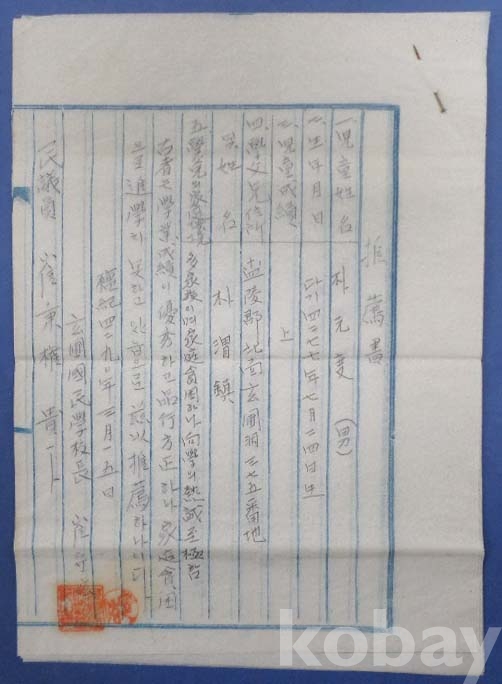 推薦書
一. 兒童姓名 朴元燮 (男)
二. 生年月日 단기四二七七年七月二四日生
三. 兒童成績 上
四. 學父兄住所 盂陵郡北面玄圃洞三七五番地
姓名 朴渭鎭
五. 學兒의家庭環境 家族이며家庭貧困하나向學의熱誠至極함
右者는學業成績이優秀하고品行方正하나家庭貧困
으로進學치못하고있음으로玆以推薦하나이다
檀紀四二九〇年三月一五日
玄圃國民學校長 崔
民議員 崔秉權 貴下
kobay